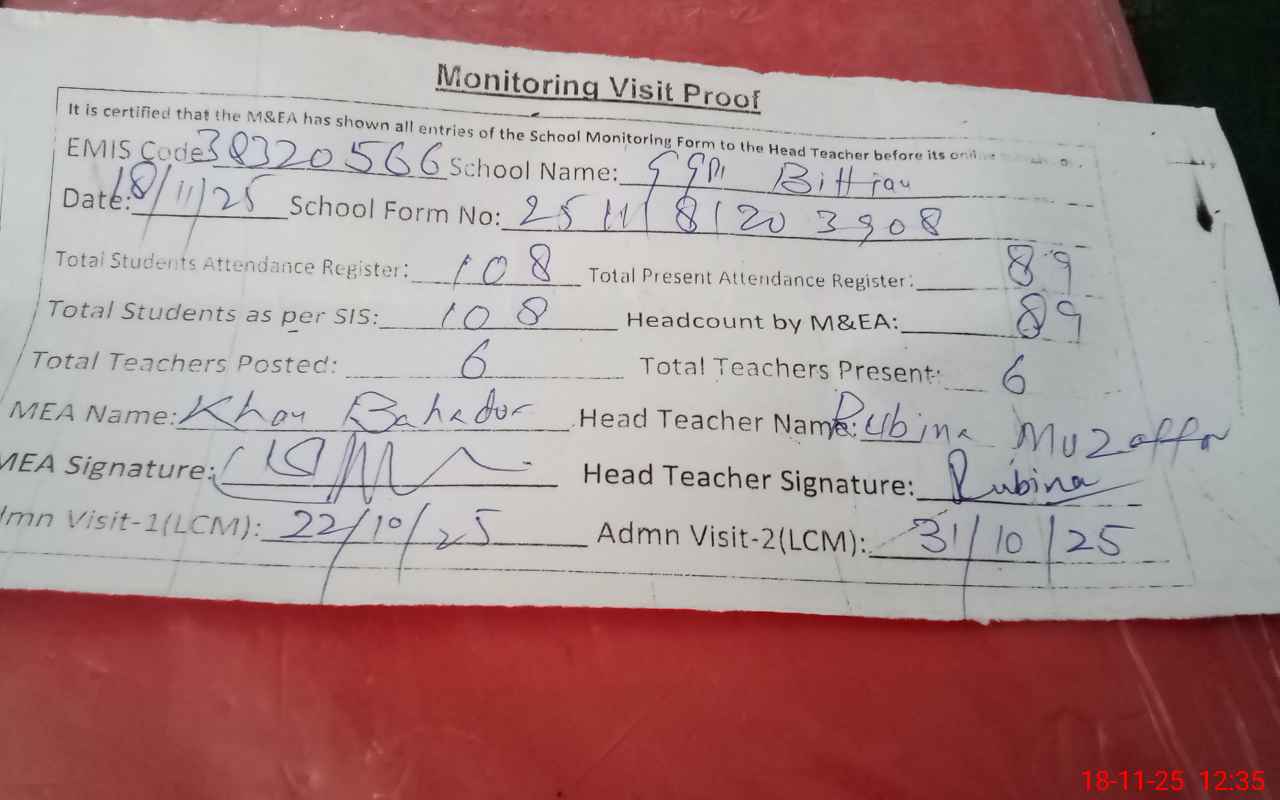 Monitoring Visit Proof
It is certified that the M&EA has shown all entries of the School Monitoring Form to the Head Teacher before its
EMIS Code 38320566 School Name: GGPS Bithrau
Date: 18/11/25 School Form No: 2511181203908
Total Students Attendance Register: 108 Total Present Attendance Register: 89
Total Students as per SIS: 108 Headcount by M&EA: 89
Total Teachers Posted: 6 Total Teachers Present: 6
MEA Name: Khan Bahadur Head Teacher Name: Rubina Muzaffar
MEA Signature: Head Teacher Signature: Rubina
dmn Visit-1(LCM): 22/10/25 Admn Visit-2(LCM): 31/10/25
18-11-25 12:35